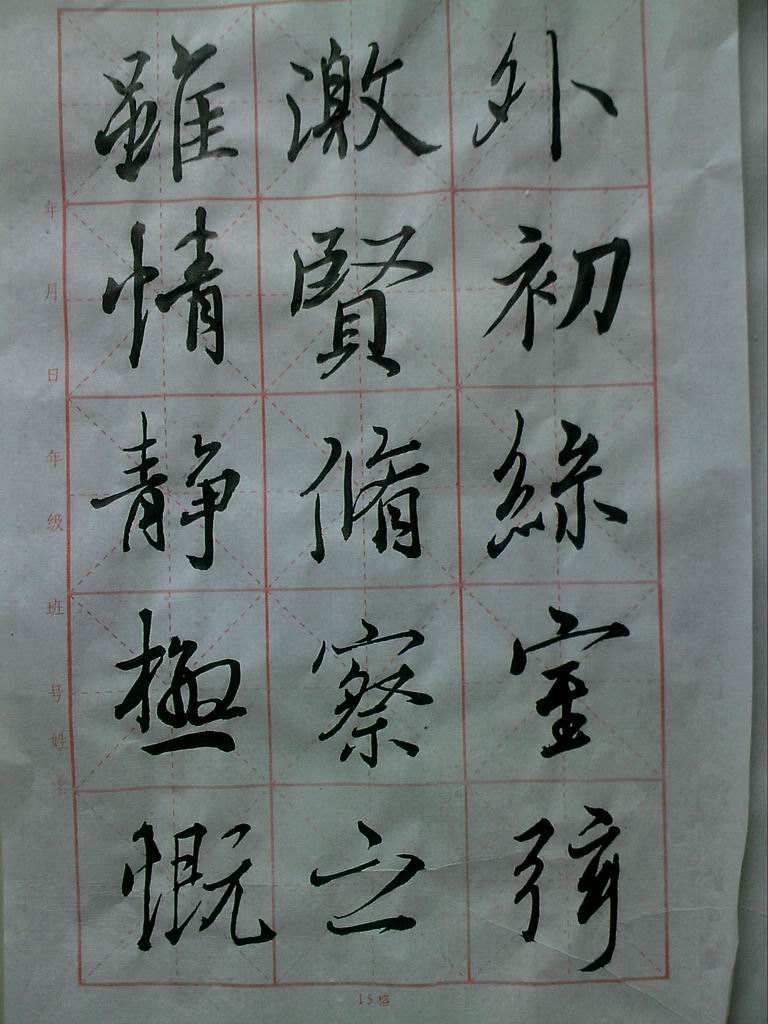 外初絲室
激賢脩察之
雖情静極慨
年 月 日 年级 班 号 姓名
15格